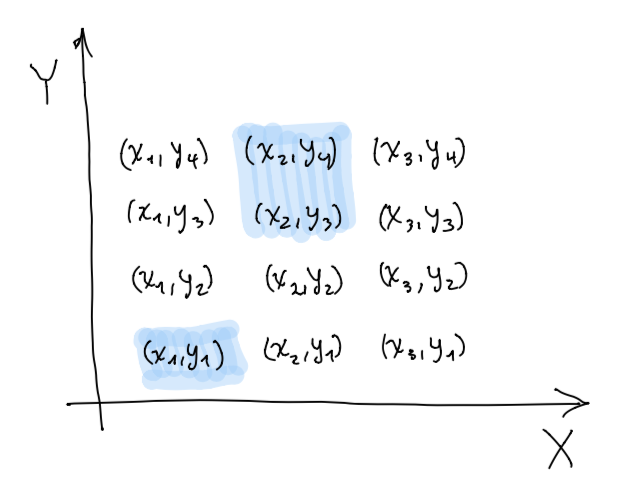 Y
(x₁, y₄) (x₂, y₄) (x₃, y₄)
(x₁, y₃) (x₂, y₃) (x₃, y₃)
(x₁, y₂) (x₂, y₂) (x₃, y₂)
(x₁, y₁) (x₂, y₁) (x₃, y₁)
X